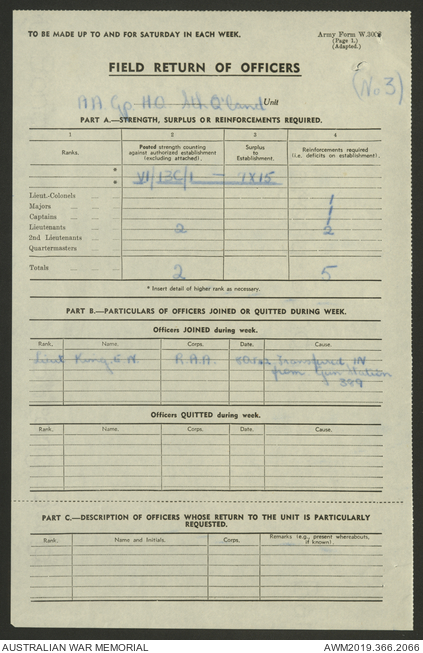 TO BE MADE UP TO AND FOR SATURDAY IN EACH WEEK.
Army Form W.3008
(Page 1.)
(Adapted.)
FIELD RETURN OF OFFICERS
(No 3)
AA Gp HQ Nth Q'land Unit
PART A.—STRENGTH, SURPLUS OR REINFORCEMENTS REQUIRED.
1 2 3 4
Ranks. Posted strength counting against authorized establishment (excluding attached). Surplus to Establishment. Reinforcements required (i.e. deficits on establishment).
* VI/13C/1 — 7X15
*
Lieut.-Colonels 1
Majors
Captains 1
Lieutenants 2 2
2nd Lieutenants
Quartermasters
Totals 2 5
* Insert detail of higher rank as necessary.
PART B.—PARTICULARS OF OFFICERS JOINED OR QUITTED DURING WEEK.
Officers JOINED during week.
Rank. Name. Corps. Date. Cause.
Lieut King E N. R.A.A. Transferred IN
from Gun Station
389
Officers QUITTED during week.
Rank. Name. Corps. Date. Cause.
PART C.—DESCRIPTION OF OFFICERS WHOSE RETURN TO THE UNIT IS PARTICULARLY
REQUESTED.
Rank. Name and Initials. Corps. Remarks (e.g., present whereabouts, if known).
AUSTRALIAN WAR MEMORIAL AWM2019.366.2066